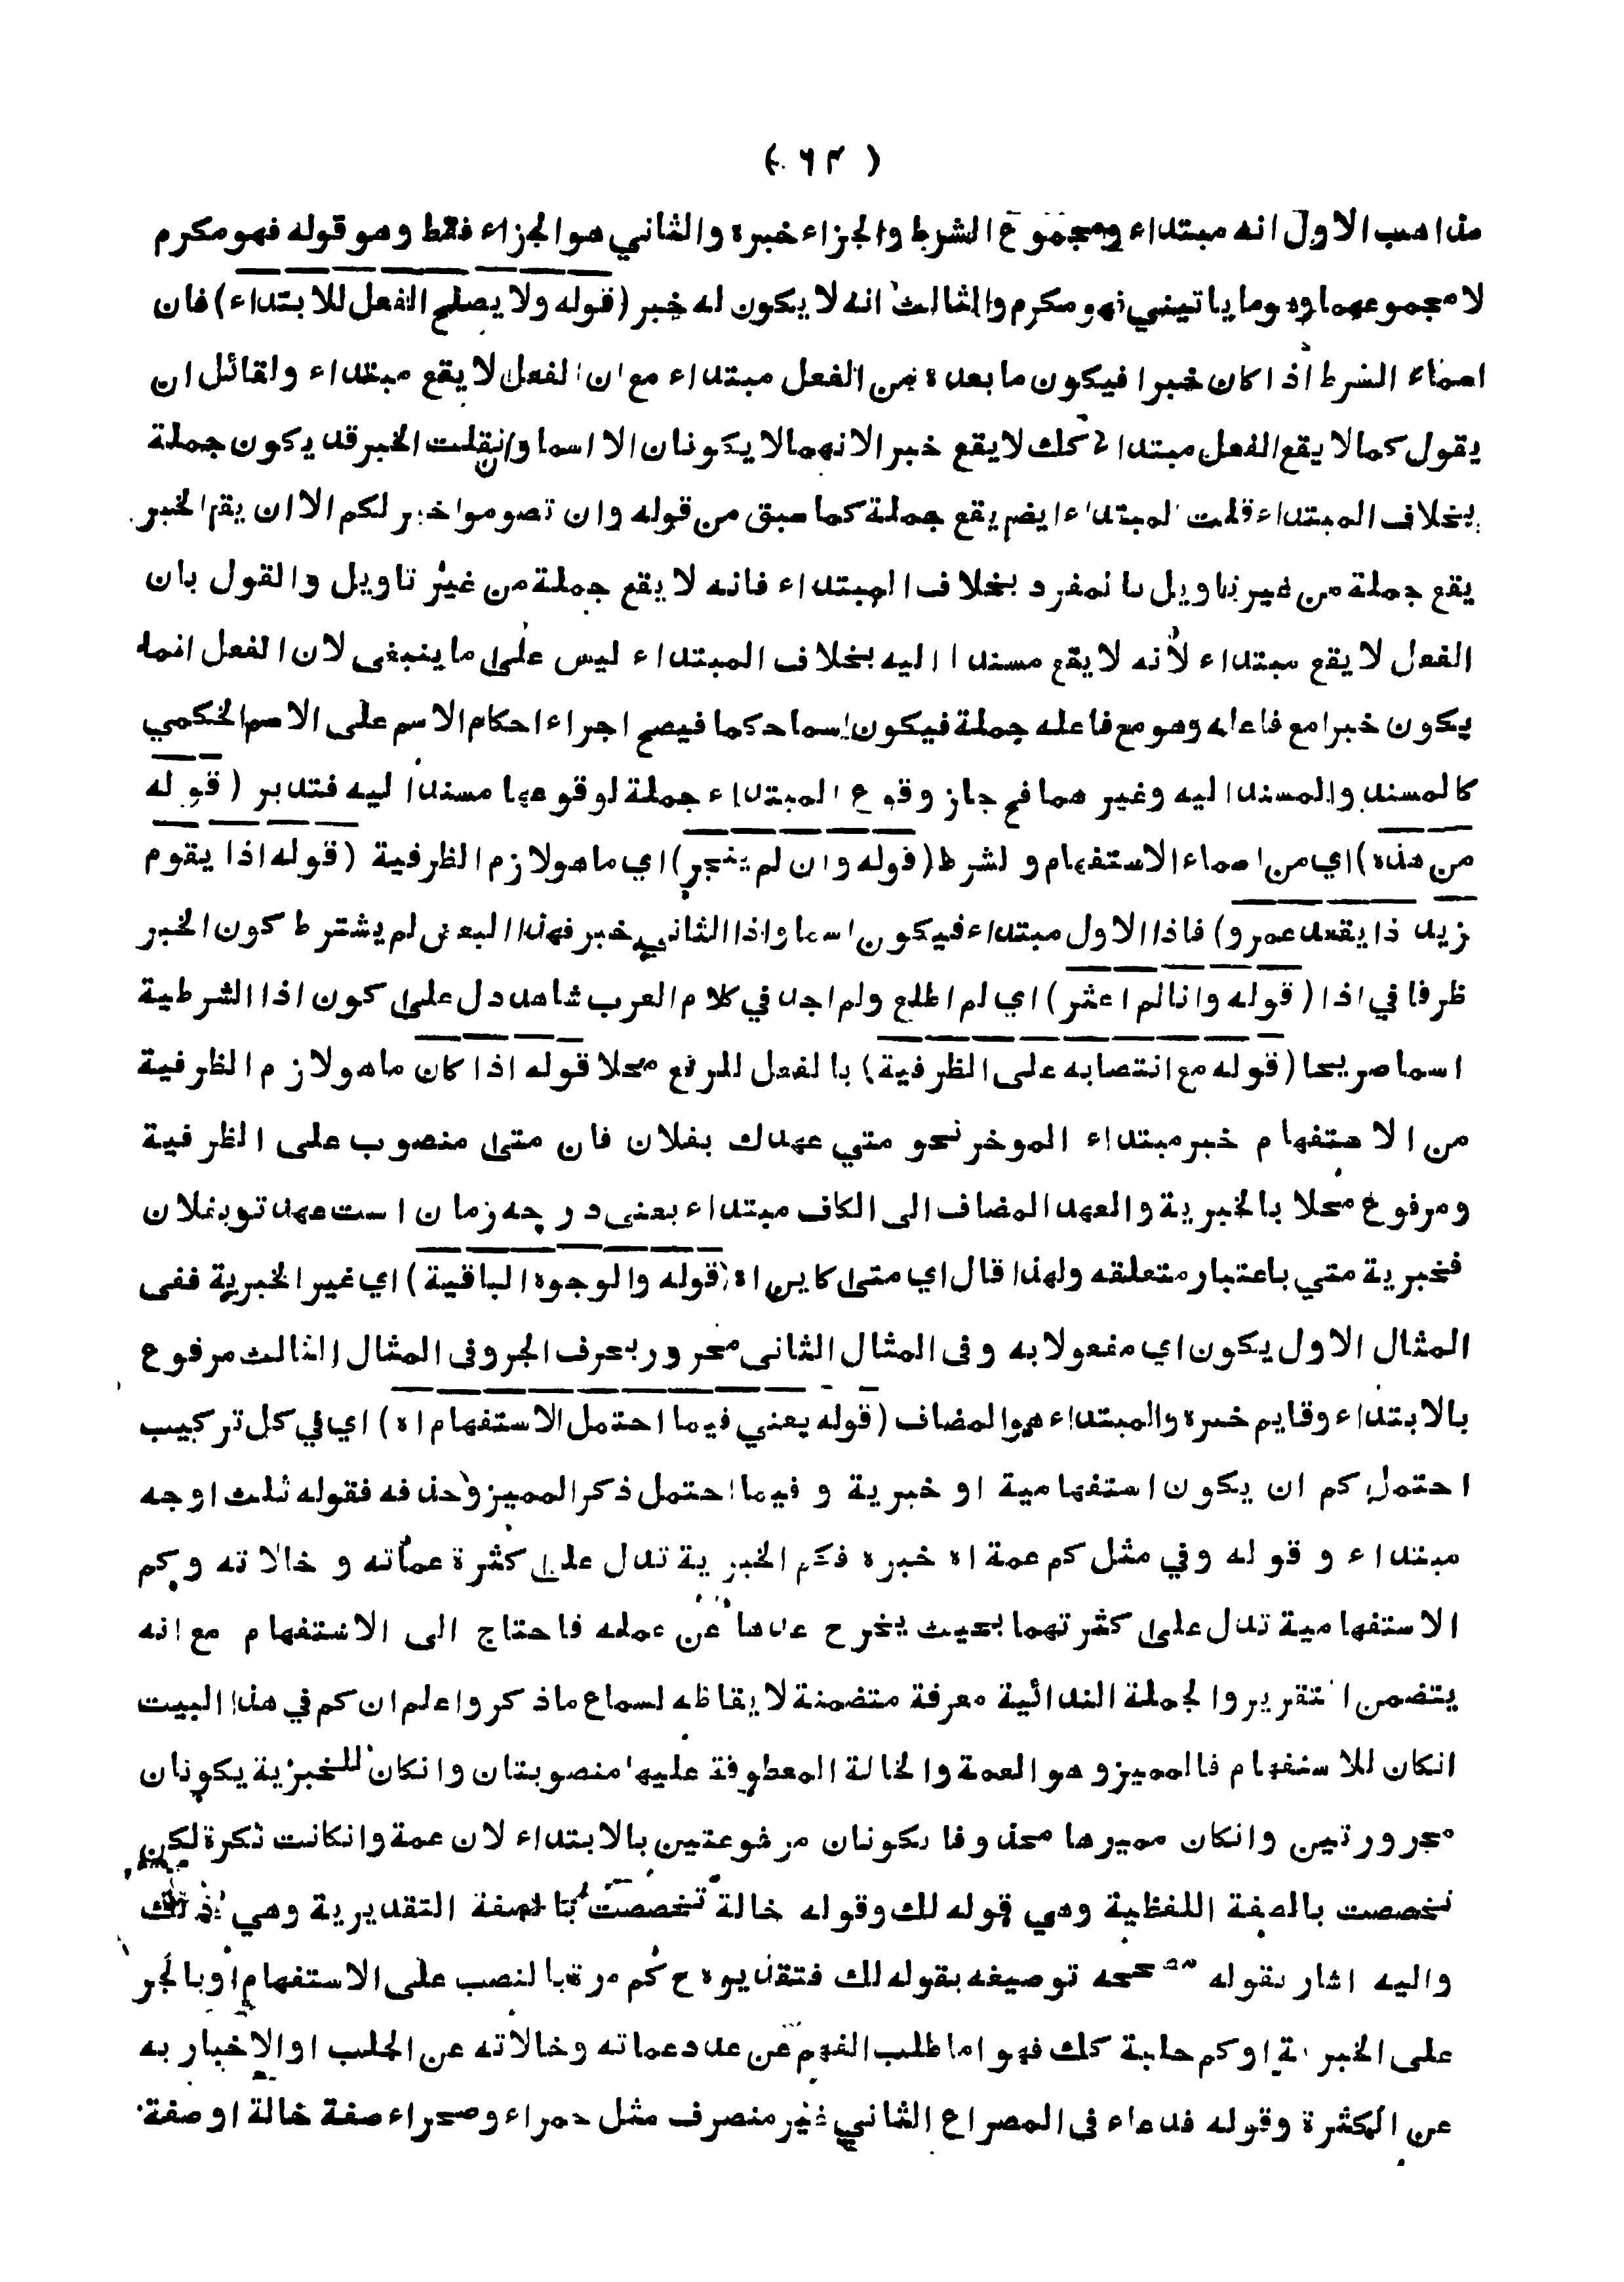 ( ٦٣ )
مذاهب الاول انه مبتداء ومجموع الشرط والجزاء خبره والثاني هوالجزاء فقط وهو قوله فهومكرم
لا مجموعهما وهوما ياتيني فهو مكرم والثالث انه لا يكون له خبر (قوله ولا يصلح الفعل للابتداء) فان
اسماء الشرط اذا كان خبرا فيكون ما بعده من الفعل مبتداء مع ان الفعل لا يقع مبتداء ولقائل ان
يقول كمالا يقع الفعل مبتدا كذلك لايقع خبر الانهمالا يكونان الا اسما وان قلت الخبر قد يكون جملة
بخلاف المبتداء قلت المبتداء ايضم يقع جملة كما سبق من قوله وان تصوموا خير لكم الا ان يقم الخبر
يقع جملة من غير تاويل بالمفرد بخلاف المبتداء فانه لا يقع جملة من غير تاويل والقول بان
الفعل لا يقع مبتداء لأنه لا يقع مسندا اليه بخلاف المبتداء ليس على ما ينبغى لان الفعل انما
يكون خبرا مع فاعله وهو مع فاعله جملة فيكون اسما حكما فيصح اجراء احكام الاسم على الاسم الحكمي
كالمسند والمسندا ليه وغير هما فح جاز وقوع المبتداء جملة لوقوعها مسندا ليه فتدبر (قوله
من هذه) اي من اسماء الاستفهام والشرط (قوله وان لم ينجر) اي ماهولازم الظرفية (قوله اذا يقوم
زيد اذا يقعد عمرو) فاذا الاول مبتداء فيكون اسما واذا الثاني خبر فهذا البعض لم يشترط كون الخبر
ظرفا في اذا (قوله وانالم اعثر) اي لم اطلع ولم اجد في كلام العرب شاهد دل على كون اذا الشرطية
اسما صريحا (قوله مع انتصابه على الظرفية) بالفعل المرفع محلا قوله اذا كان ماهولازم الظرفية
من الاستفهام خبر مبتداء الموخر نحو متي عهدك بفلان فان متى منصوب على الظرفية
ومرفوع محلا بالخبرية والعهد المضاف الى الكاف مبتداء بعنى در چه زمان است عهد تو بفلان
فخبرية متي باعتبار متعلقه ولهذا قال اي متى كاين اه (قوله والوجوه الباقية) اي غير الخبرية ففى
المثال الاول يكون اي مفعولا به وفى المثال الثانى مجرور بحرف الجر وفى المثال الثالث مرفوع
بالابتداء وقايم خبره والمبتداء هو المضاف (قوله يعني فيما احتمل الاستفهام اه) اي في كل تركيب
احتمل كم ان يكون استفهامية او خبرية و فيما احتمل ذكر المميز وحذفه فقوله ثلث اوجه
مبتداء و قوله وفي مثل كم عمة اه خبره فكم الخبرية تدل على كثرة عماته و خالاته وكم
الاستفهامية تدل على كثرتهما بحيث يخرج عدها عن عمله فاحتاج الى الاستفهام مع انه
يتضمن التقرير والجملة الندائية معرفة متضمنة لايقاظه لسماع ماذكر واعلم ان كم في هذا البيت
انكان للاستفهام فالمميز وهو العمة والخالة المعطوفة عليها منصوبتان وانكان للخبرية يكونان
مجرورتين وانكان مميرها محذوفا يكونان مرفوعتين بالابتداء لان عمة وانكانت نكرة لكن
تخصصت بالصفة اللفظية وهي قوله لك وقوله خالة تخصصت بالصفة التقديرية وهي لك
واليه اشار بقوله توصيفه بقوله لك فتقديره ح كم مرة بالنصب على الاستفهام اوبالجر
على الخبرية اوكم حلبة كك فهو اما طلب الفهم عن عدد عماته وخالاته عن الحلب او الاخبار به
عن الكثرة وقوله فدعاء فى المصراع الثاني غير منصرف مثل حمراء وصحراء صفة خالة اوصفة